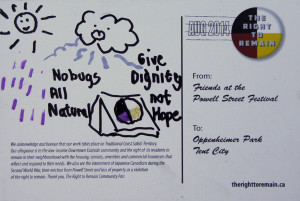 AUG 2019
THE
RIGHT
TO
REMAIN
No bugs
All
Natural
Give
Dignity
not
Hope
From:
Friends at the
Powell Street Festival
To:
Oppenheimer Park
Tent City
We acknowledge and honour that our work takes place on Traditional Coast Salish Territory.
Our allegiance is to the low-income Downtown Eastside community and the right of its residents to
remain in their neighbourhood with the housing, services, amenities and commercial businesses that
reflect and respond to their needs. We also see the internment of Japanese Canadians during the
Second World War, their eviction from Powell Street and loss of property as a violation
of the right to remain. Thank you, The Right to Remain Community Fair.
therighttoremain.ca